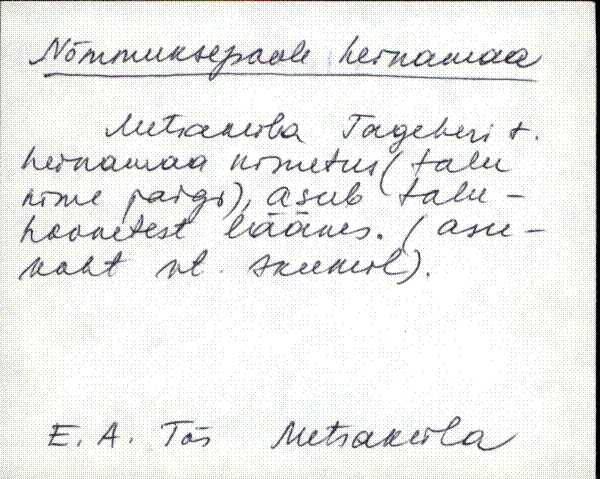 Nõmmuksepoole heinamaa
Metsaküla Tageperi t.
heinamaa nimetus (talu
nime järgi), asub talu-
hoonetest läänes. (asu-
koht vt. skeemil).
E. A. Tõs Metsaküla